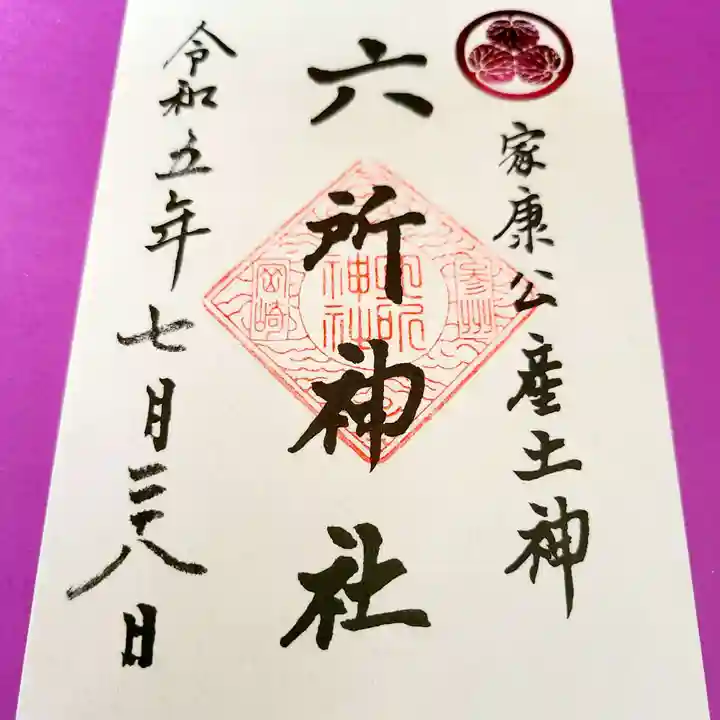 家康公産土神
六所神社
令和五年七月二十八日
参州
六所
神社
岡崎